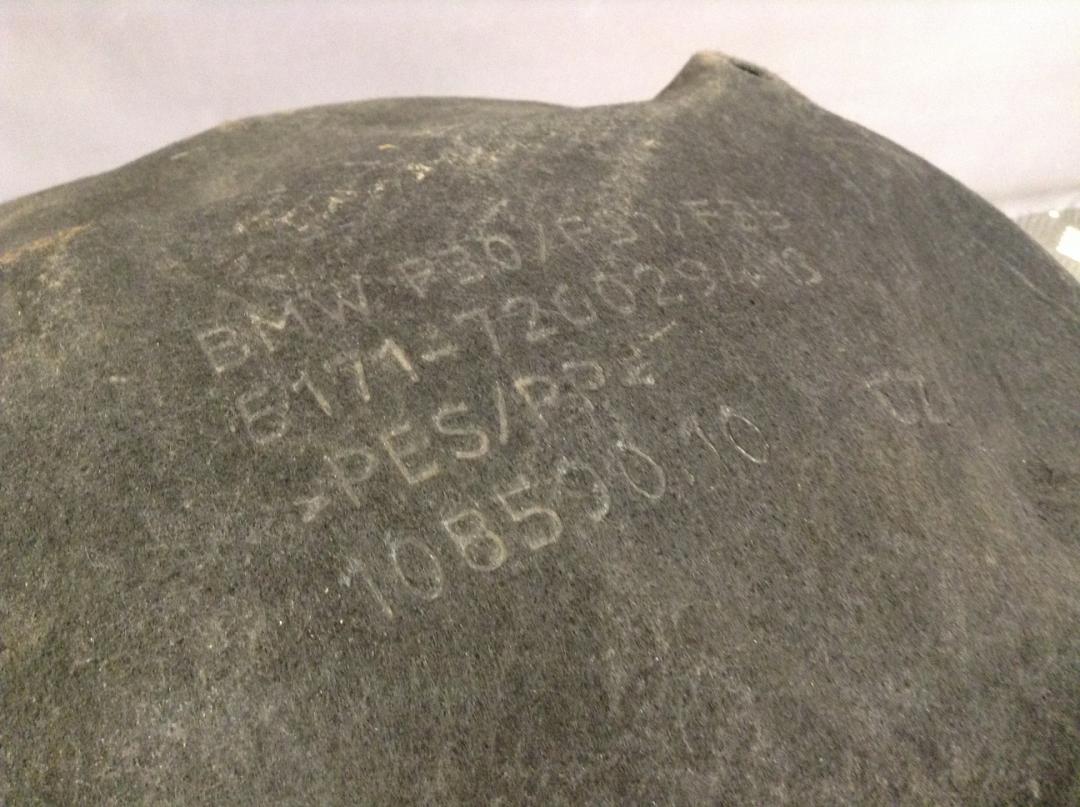 BMW F30/F31/F35
5171-7260294.6
>PES/PPE
108590.10
CZ